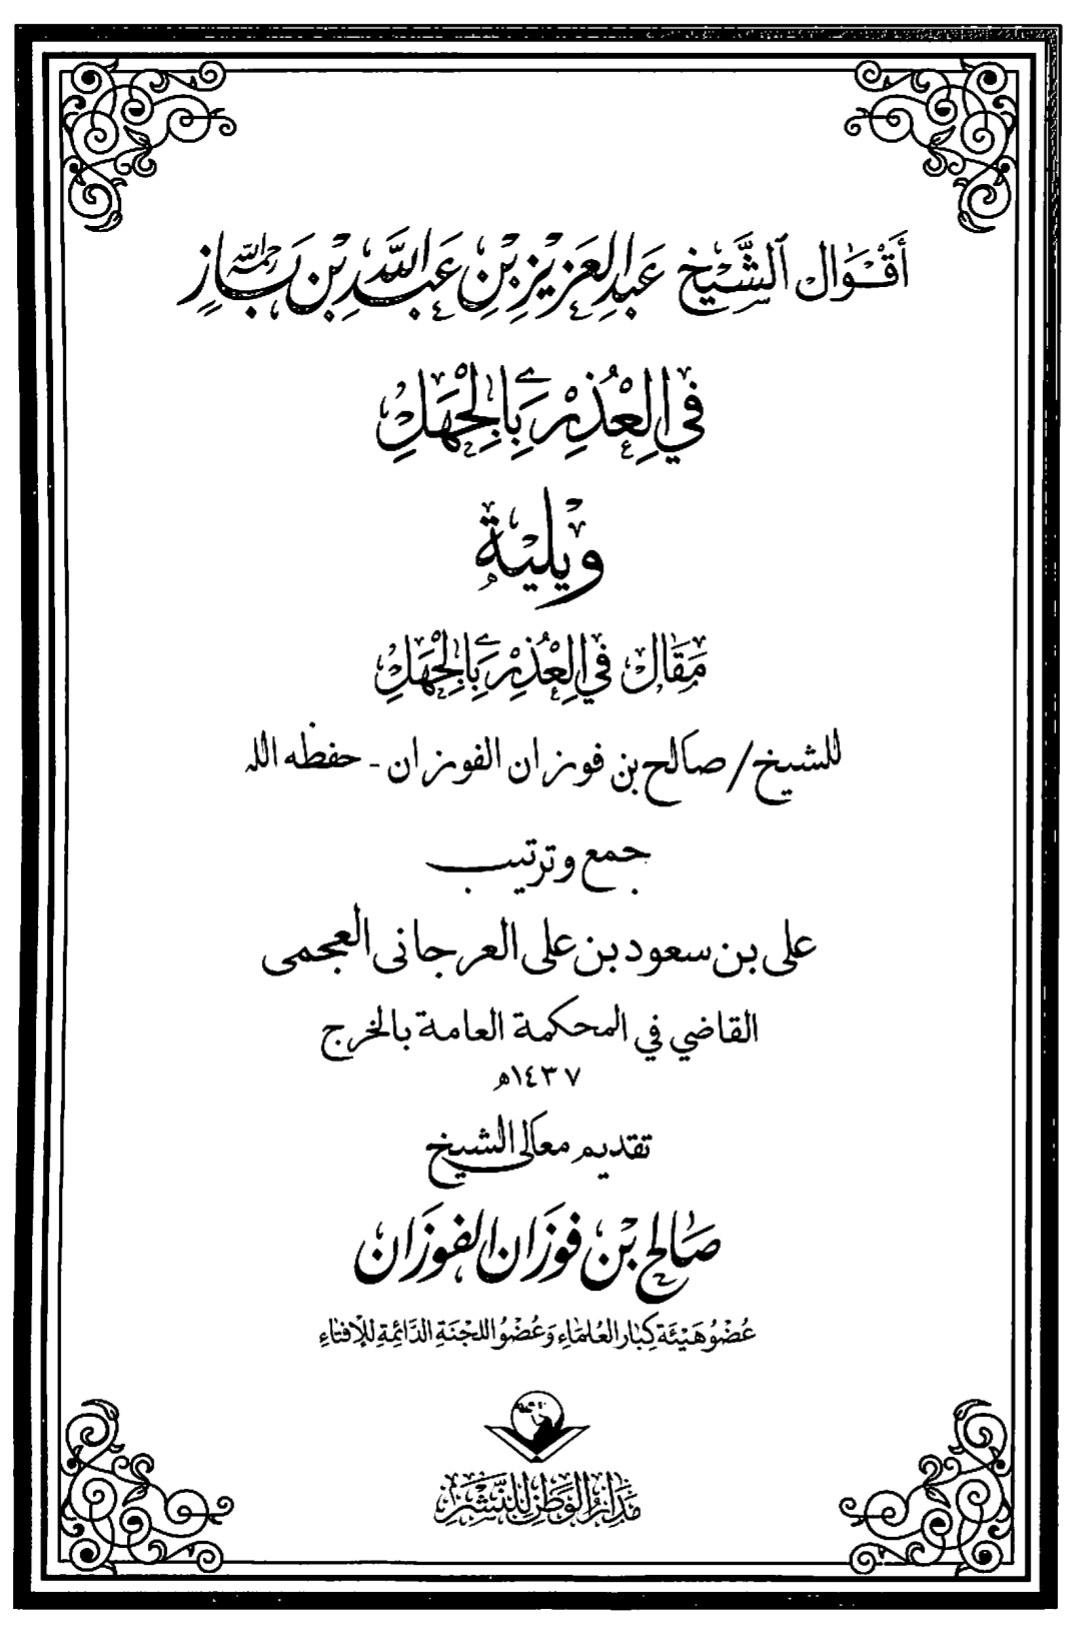 أَقْوَال الشَّيْخ عَبدِ العَزِيْزِ بْنِ عَبدِ اللَّه بْنِ بَازٍ رَحِمَهُ اللَّه
فِي العُذْرِ بَالجَهَلِ
ويليه
مَقَال فِي العُذْرِ بَالجَهَلِ
للشيخ / صالح بن فوزان الفوزان - حفظه الله
جمع وترتيب
علي بن سعود بن علي العرجاني العجمي
القاضي في المحكمة العامة بالخرج
١٤٣٧هـ
تقديم معالي الشيخ
صَالح بْن فَوزَان الفَوزَان
عُضْوُ هَيْئَة كِبَار العُلمَاءِ وَعُضْوُ اللجْنَةِ الدَّائِمَةِ لِلإفتَاءِ
مَدَارُ الوَطَنِ لِلنَّشْرِ